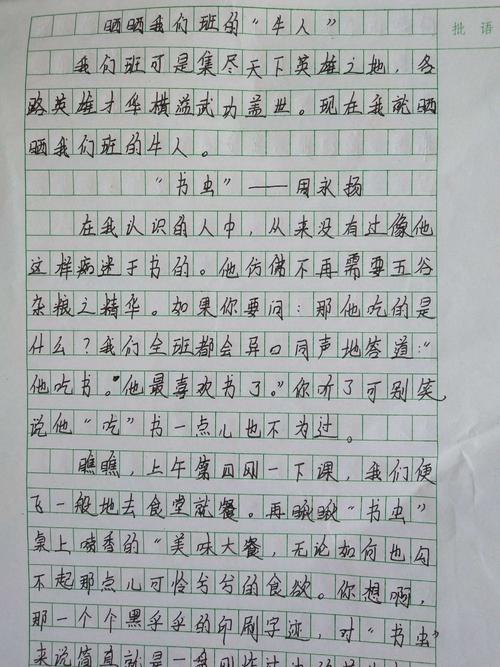 晒晒我们班的“牛人”
批 语
我们班可是集尽天下英雄之地，各
路英雄才华横溢武功盖世。现在我就晒
晒我们班的牛人。
“书虫”——周永扬
在我认识的人中，从来没有过像他
这样痴迷于书的。他仿佛不再需要五谷
杂粮之精华。如果你要问：那他吃的是
什么？我们全班都会异口同声地答道：“
他吃书。”他最喜欢书了。”你听了可别笑，
说他“吃”书一点儿也不为过。
瞧瞧，上午第四刚一下课，我们便
飞一般地去食堂就餐。再瞅瞅“书虫”
桌上喷香的“美味大餐，无论如何也勾
不起那点儿可怜兮兮的食欲。你想啊，
那一个个黑乎乎的印刷字迹，对“书虫”
来说简直就是一